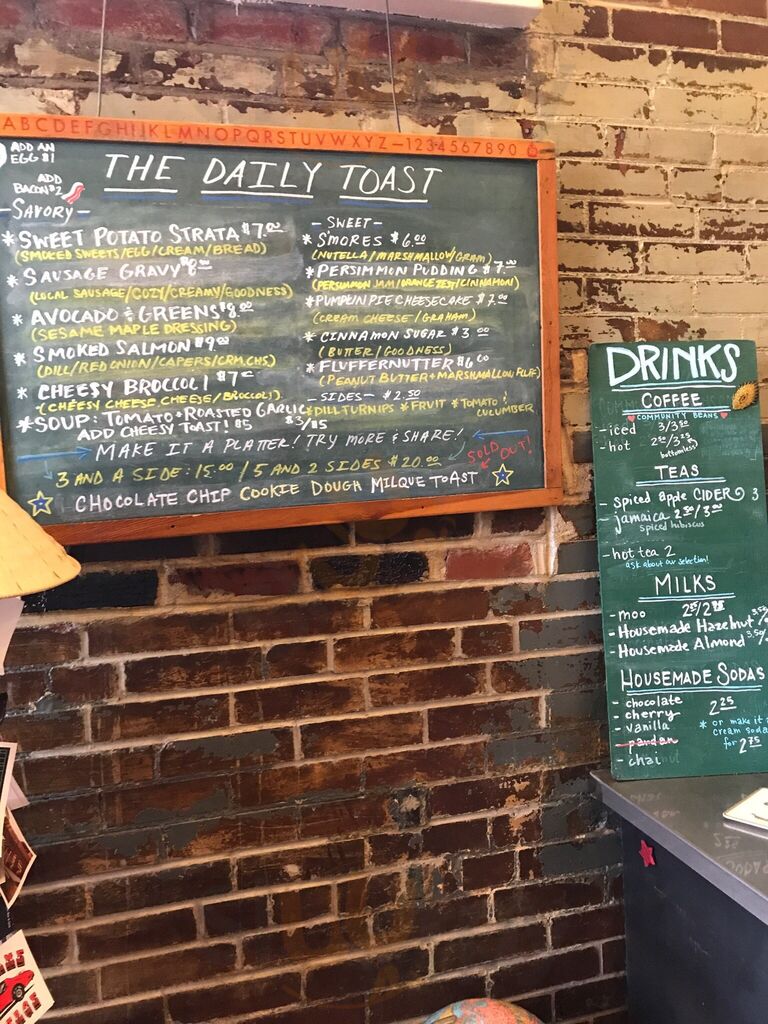 ABCDEFGHIJKLMNOPQRSTUVWXYZ-1234567890
ADD AN
EGG $1
THE DAILY TOAST
ADD
BACON $2
- SAVORY -
* SWEET POTATO STRATA $7.00
(SMOKED SWEETS/EGG/CREAM/BREAD)
* SAUSAGE GRAVY $8.00
(LOCAL SAUSAGE/COZY/CREAMY/GOODNESS)
* AVOCADO & GREENS $8.00
(SESAME MAPLE DRESSING)
* SMOKED SALMON $9.00
(DILL/RED ONION/CAPERS/CRM.CHS)
* CHEESY BROCCOLI $7.00
(CHEESY CHEESE CHEESE/BROCCOLI)
* SOUP: TOMATO + ROASTED GARLIC $3/$5
ADD CHEESY TOAST! $5
- SWEET -
* S'MORES $6.00
(NUTELLA/MARSHMALLOW/GRAM)
* PERSIMMON PUDDING $7.00
(PERSIMMON JAM/ORANGE ZEST/CINNAMON)
* PUMPKIN PIE CHEESECAKE $7.00
(CREAM CHEESE / GRAHAM)
* CINNAMON SUGAR $3.00
(BUTTER/GOODNESS)
* FLUFFERNUTTER $6.00
(PEANUT BUTTER + MARSHMALLOW FLUFF)
- SIDES - $2.50
* DILL TURNIPS * FRUIT * TOMATO &
CUCUMBER
MAKE IT A PLATTER! TRY MORE & SHARE!
3 AND A SIDE: 15.00 / 5 AND 2 SIDES $20.00
SOLD
OUT!
CHOCOLATE CHIP COOKIE DOUGH MILQUE TOAST
DRINKS
COFFEE
COMMUNITY BEANS
- iced 3/3.50
- hot 2.50/3.25
bottomless!
TEAS
- spiced apple CIDER 3
- jamaica 2.50/3.00
spiced hibiscus
- hot tea 2
ask about our selection!
MILKS
- moo 2.25/2.75
- Housemade Hazelnut 3.50
- Housemade Almond 3.50
HOUSEMADE SODAS
- chocolate 2.25
- cherry
- vanilla
- pandan
- chai
* or make it a
cream soda
for 2.75